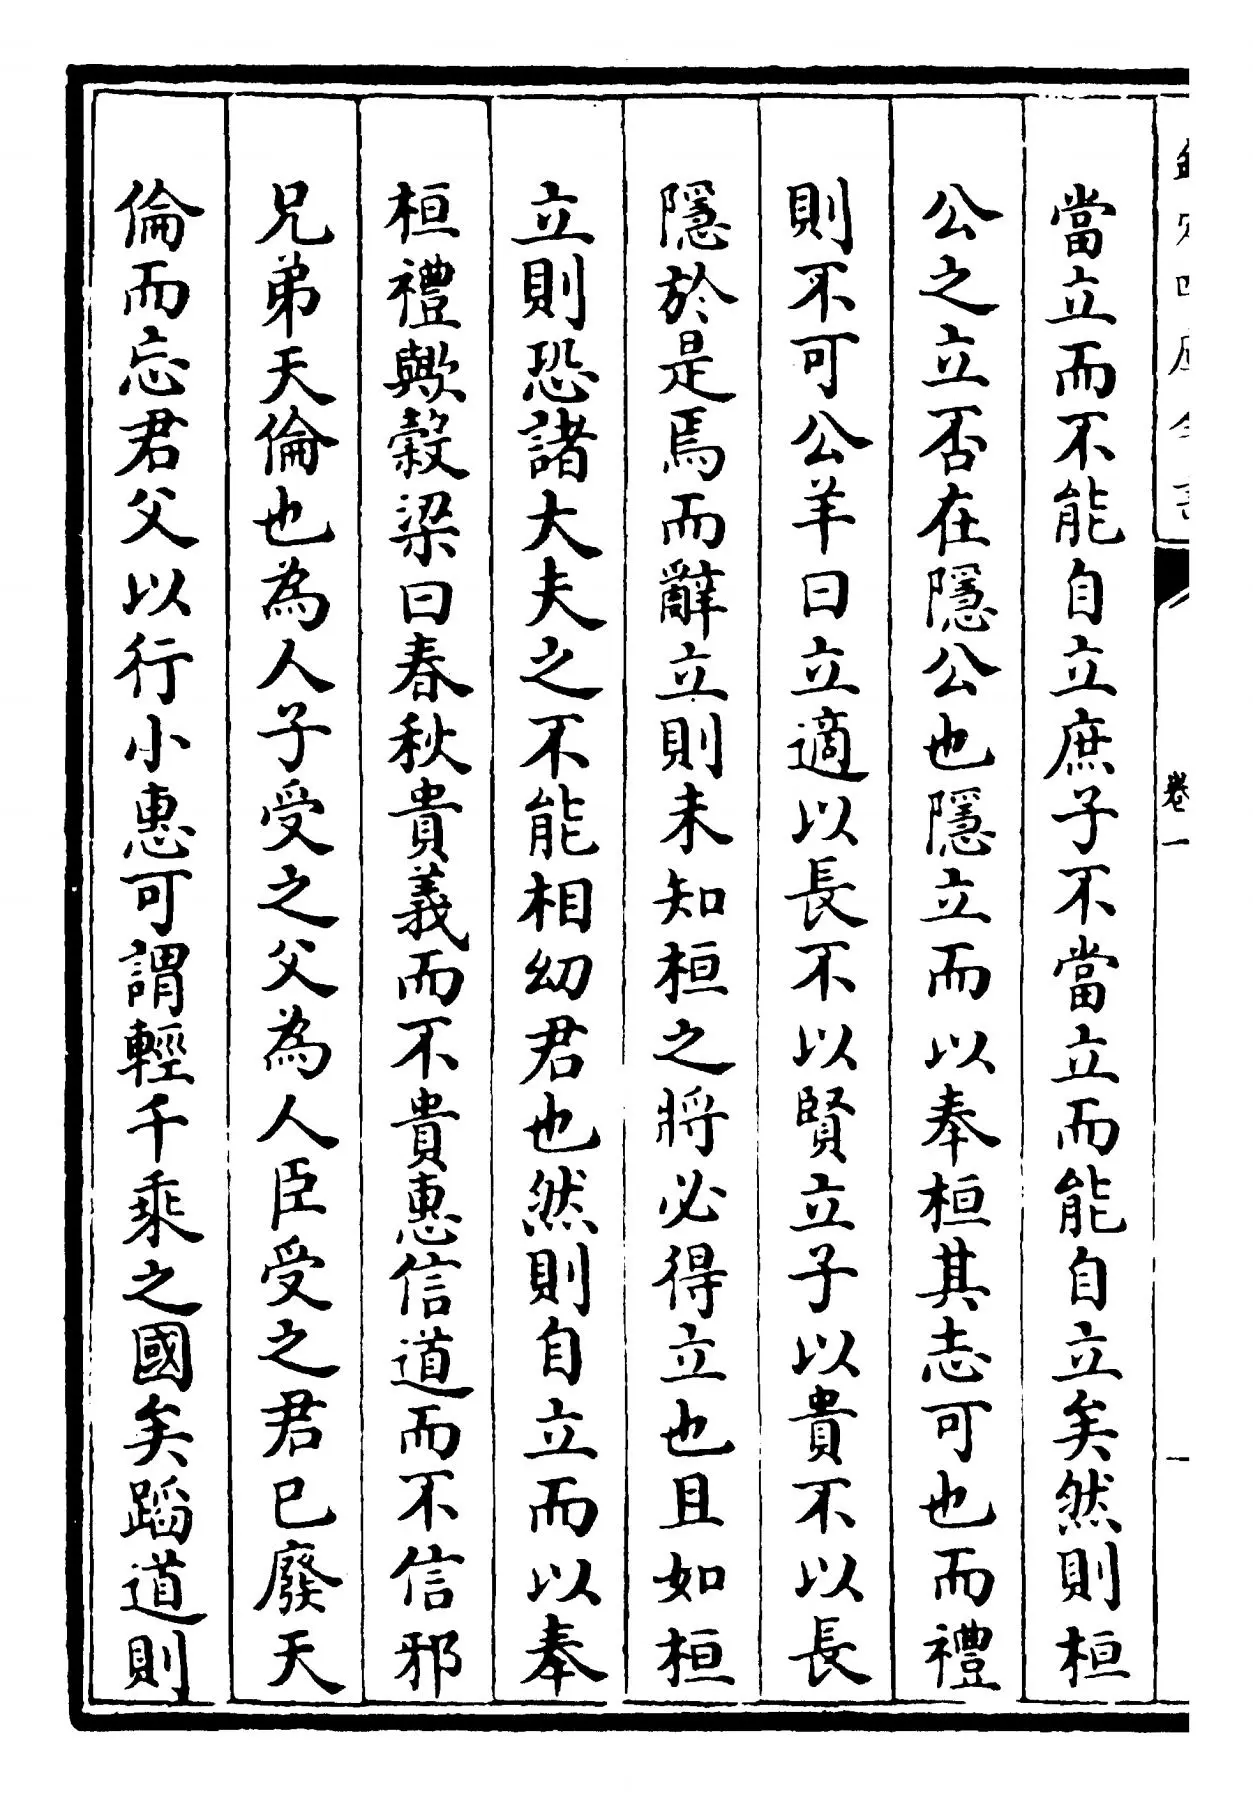 欽定四庫全書
卷一
一
當立而不能自立庶子不當立而能自立矣然則桓
公之立否在隱公也隱立而以奉桓其志可也而禮
則不可公羊曰立適以長不以賢立子以貴不以長
隱於是焉而辭立則未知桓之將必得立也且如桓
立則恐諸大夫之不能相幼君也然則自立而以奉
桓禮歟榖梁曰春秋貴義而不貴惠信道而不信邪
兄弟天倫也為人子受之父為人臣受之君已廢天
倫而忘君父以行小惠可謂輕千乘之國矣蹈道則